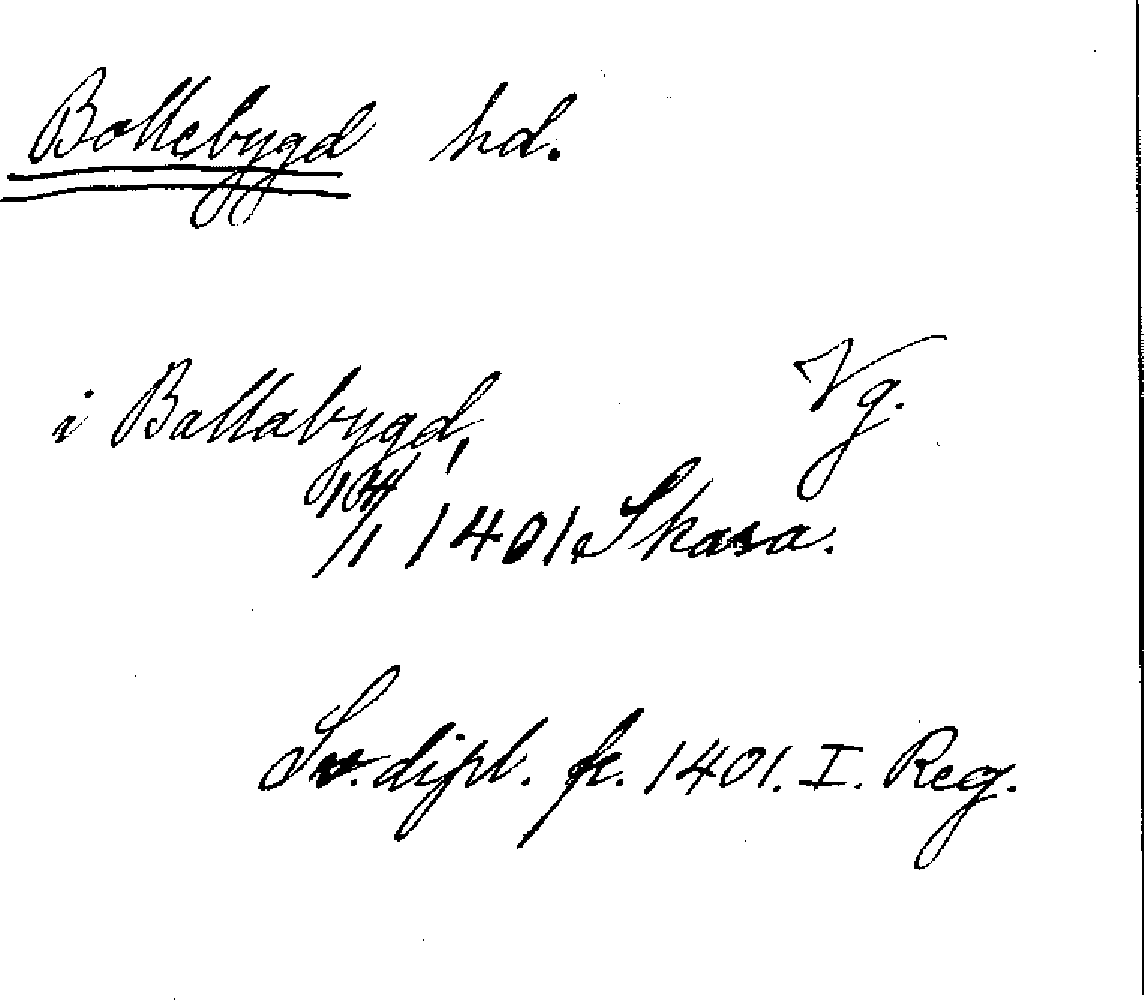 Bollebygd hd.
i Ballabygd, Vg.
/1 1401. Skara.
Sv. dipl. fr. 1401. I. Reg.